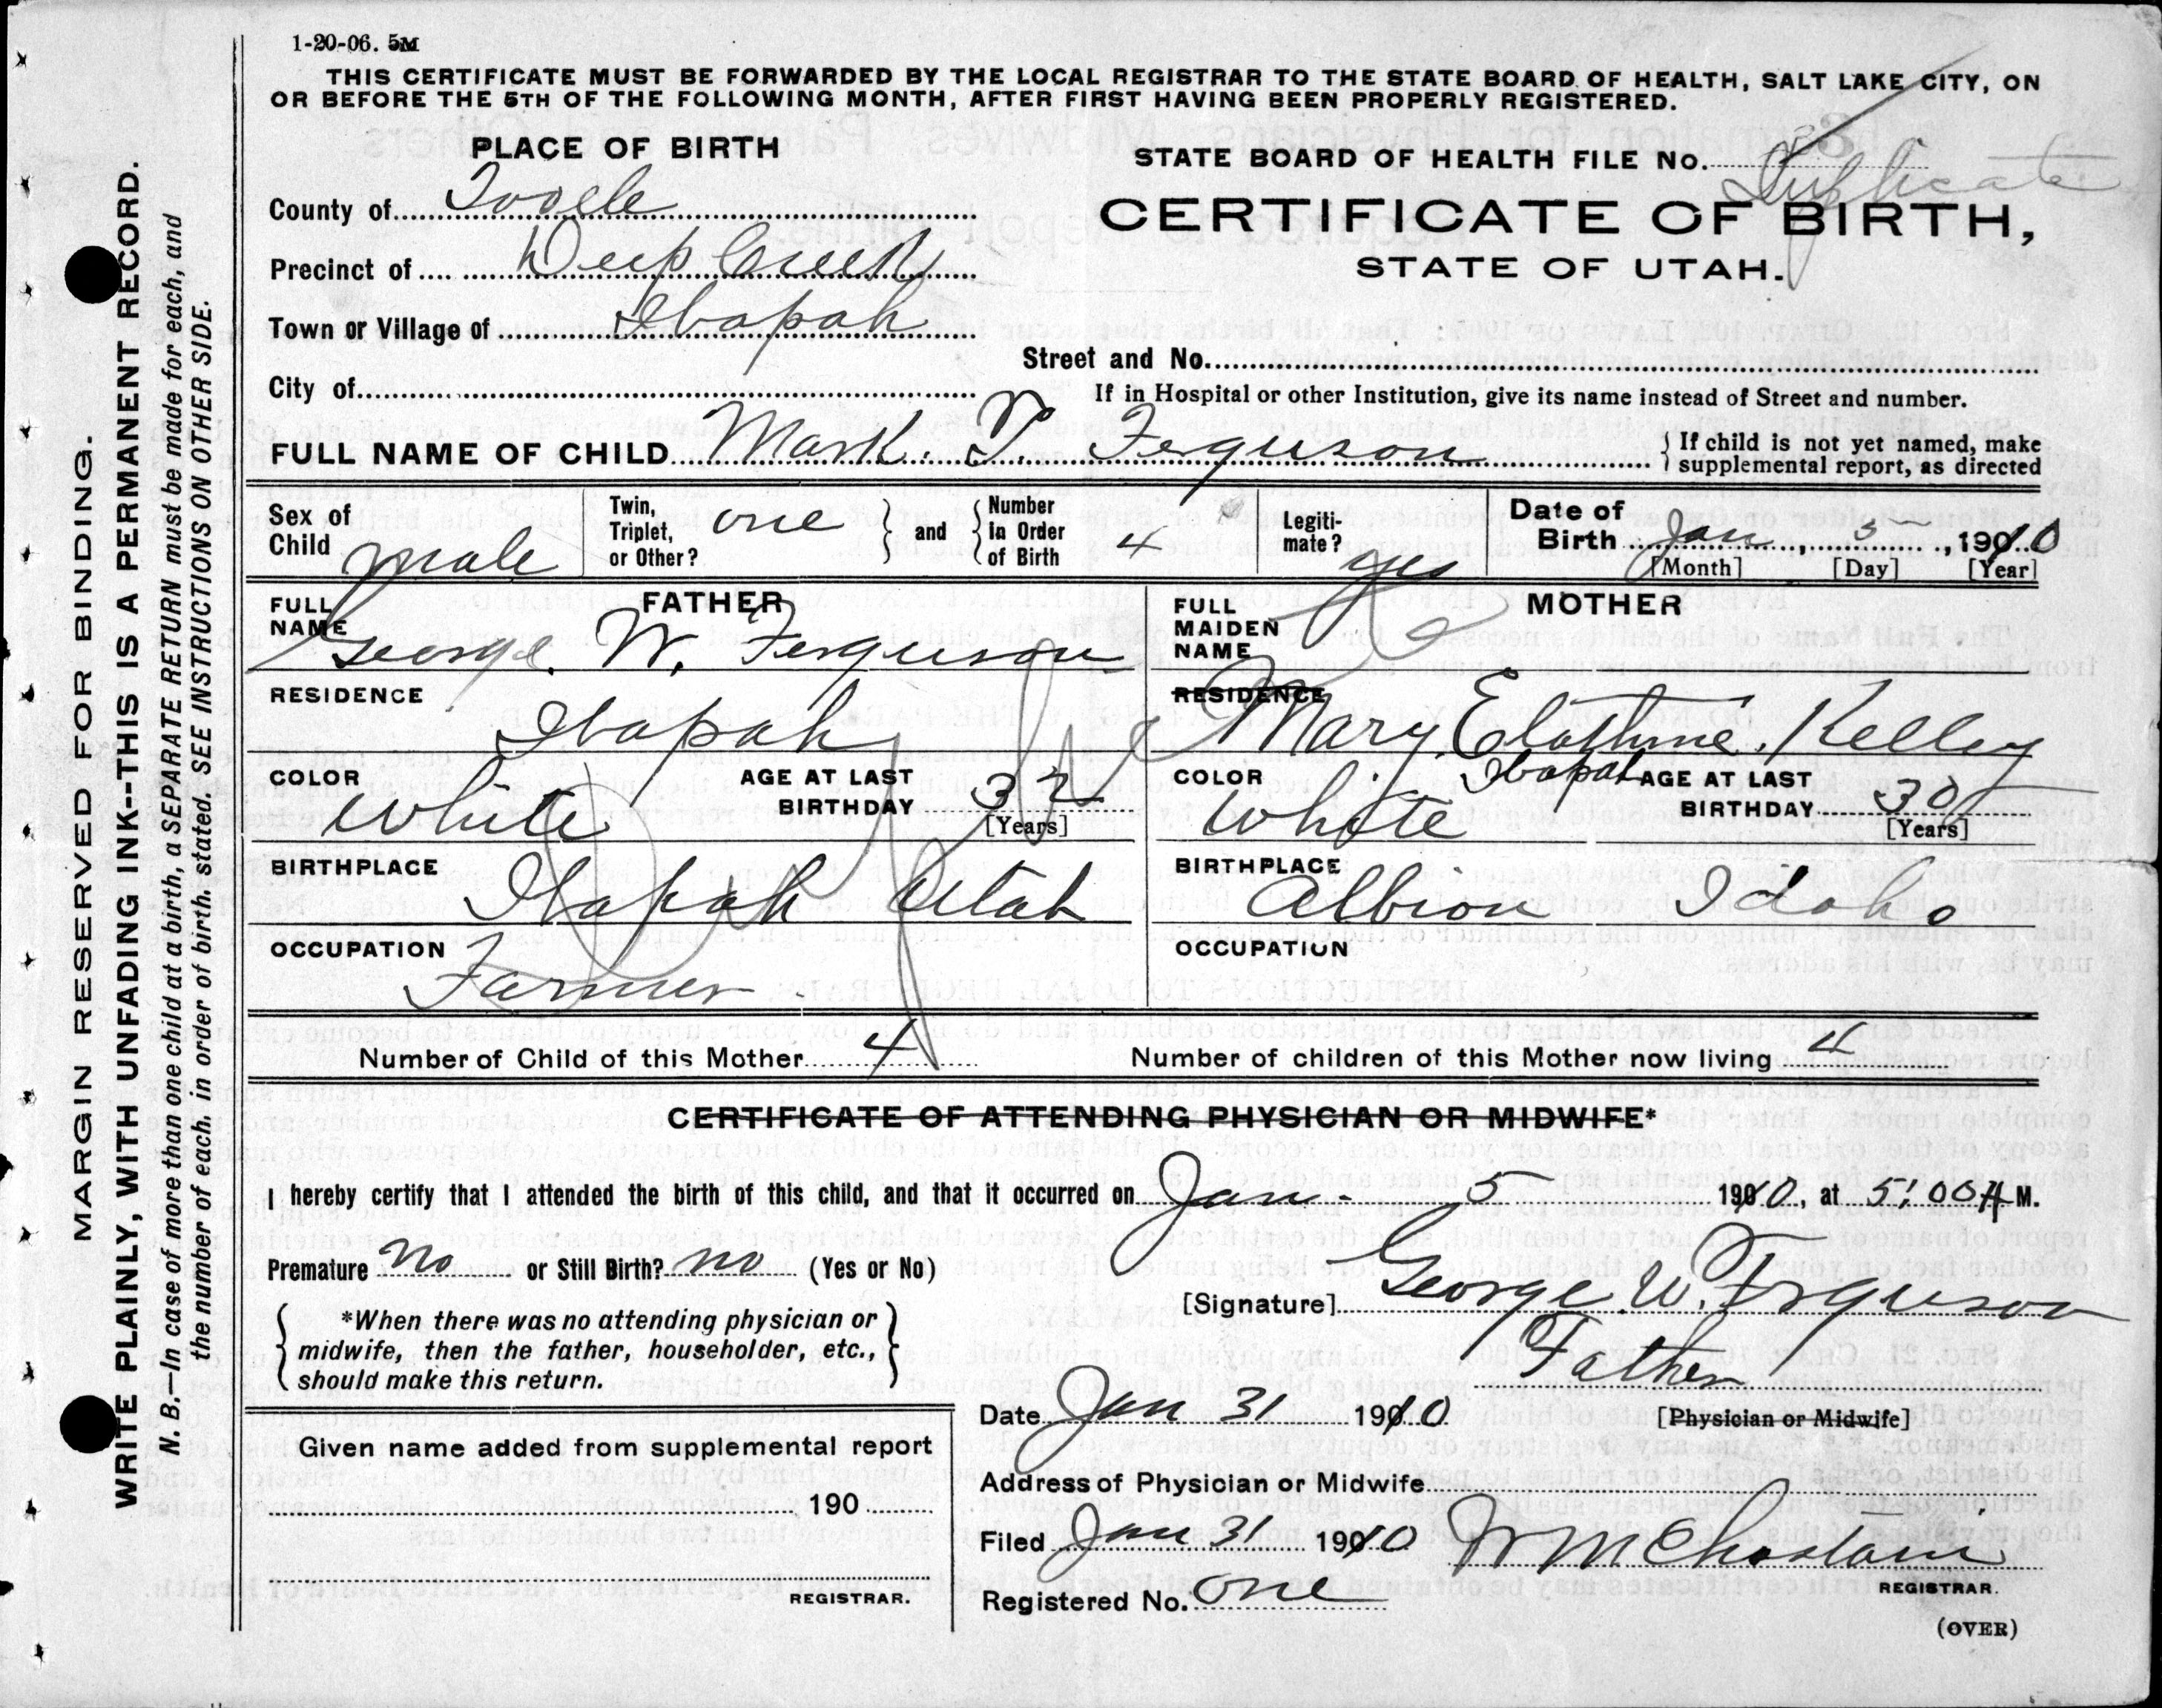 1-20-06. 5M
THIS CERTIFICATE MUST BE FORWARDED BY THE LOCAL REGISTRAR TO THE STATE BOARD OF HEALTH, SALT LAKE CITY, ON
OR BEFORE THE 5TH OF THE FOLLOWING MONTH, AFTER FIRST HAVING BEEN PROPERLY REGISTERED.
PLACE OF BIRTH
County of Tooele
Precinct of Deep Creek
Town or Village of Ibapah
City of
STATE BOARD OF HEALTH FILE No.
Duplicate
CERTIFICATE OF BIRTH,
STATE OF UTAH.
Street and No.
If in Hospital or other Institution, give its name instead of Street and number.
FULL NAME OF CHILD Mark. T. Ferguson
If child is not yet named, make
supplemental report, as directed
Sex of Child male
Twin, Triplet, or Other? one
and
Number in Order of Birth 4
Legiti-mate? yes
Date of Birth Jan, 5, 1910
[Month] [Day] [Year]
FATHER
FULL NAME George. W. Ferguson
RESIDENCE Ibapah
COLOR White
AGE AT LAST BIRTHDAY 32
[Years]
BIRTHPLACE Ibapah Utah
OCCUPATION Farmer
MOTHER
FULL MAIDEN NAME
RESIDENCE
Mary. Kelley
Ibapah
COLOR White
AGE AT LAST BIRTHDAY 30
[Years]
BIRTHPLACE Albion Idaho
OCCUPATION
Number of Child of this Mother 4
Number of children of this Mother now living 4
CERTIFICATE OF ATTENDING PHYSICIAN OR MIDWIFE*
I hereby certify that I attended the birth of this child, and that it occurred on Jan. 5 1910, at 5:00 A M.
Premature no or Still Birth? no (Yes or No)
*When there was no attending physician or
midwife, then the father, householder, etc.,
should make this return.
[Signature] George W. Ferguson
Father
[Physician or Midwife]
Date Jan 31 1910
Address of Physician or Midwife
Filed Jan 31 1910 REGISTRAR.
Registered No. one
(OVER)
Given name added from supplemental report
190
REGISTRAR.
MARGIN RESERVED FOR BINDING.
WRITE PLAINLY, WITH UNFADING INK--THIS IS A PERMANENT RECORD.
N. B.—In case of more than one child at a birth, a SEPARATE RETURN must be made for each, and
the number of each, in order of birth. stated. SEE INSTRUCTIONS ON OTHER SIDE.